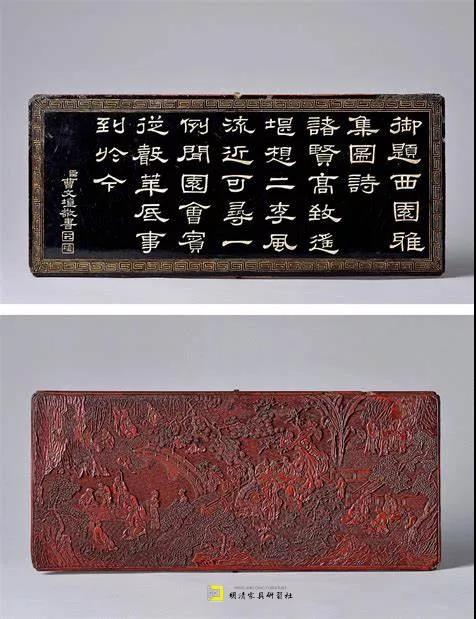 御題西園雅
集圖詩
諸賢高致遙
堪想二李風
流近可尋一
例聞園會賓
從華底事
到於今
臣曹文埴敬書
明清家具研習社